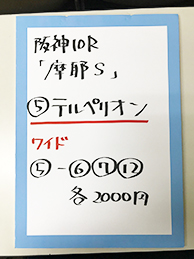 阪神10R
「摩耶S」
⑤テルペリオン
ワイド
⑤-⑥⑦⑫
各2000円